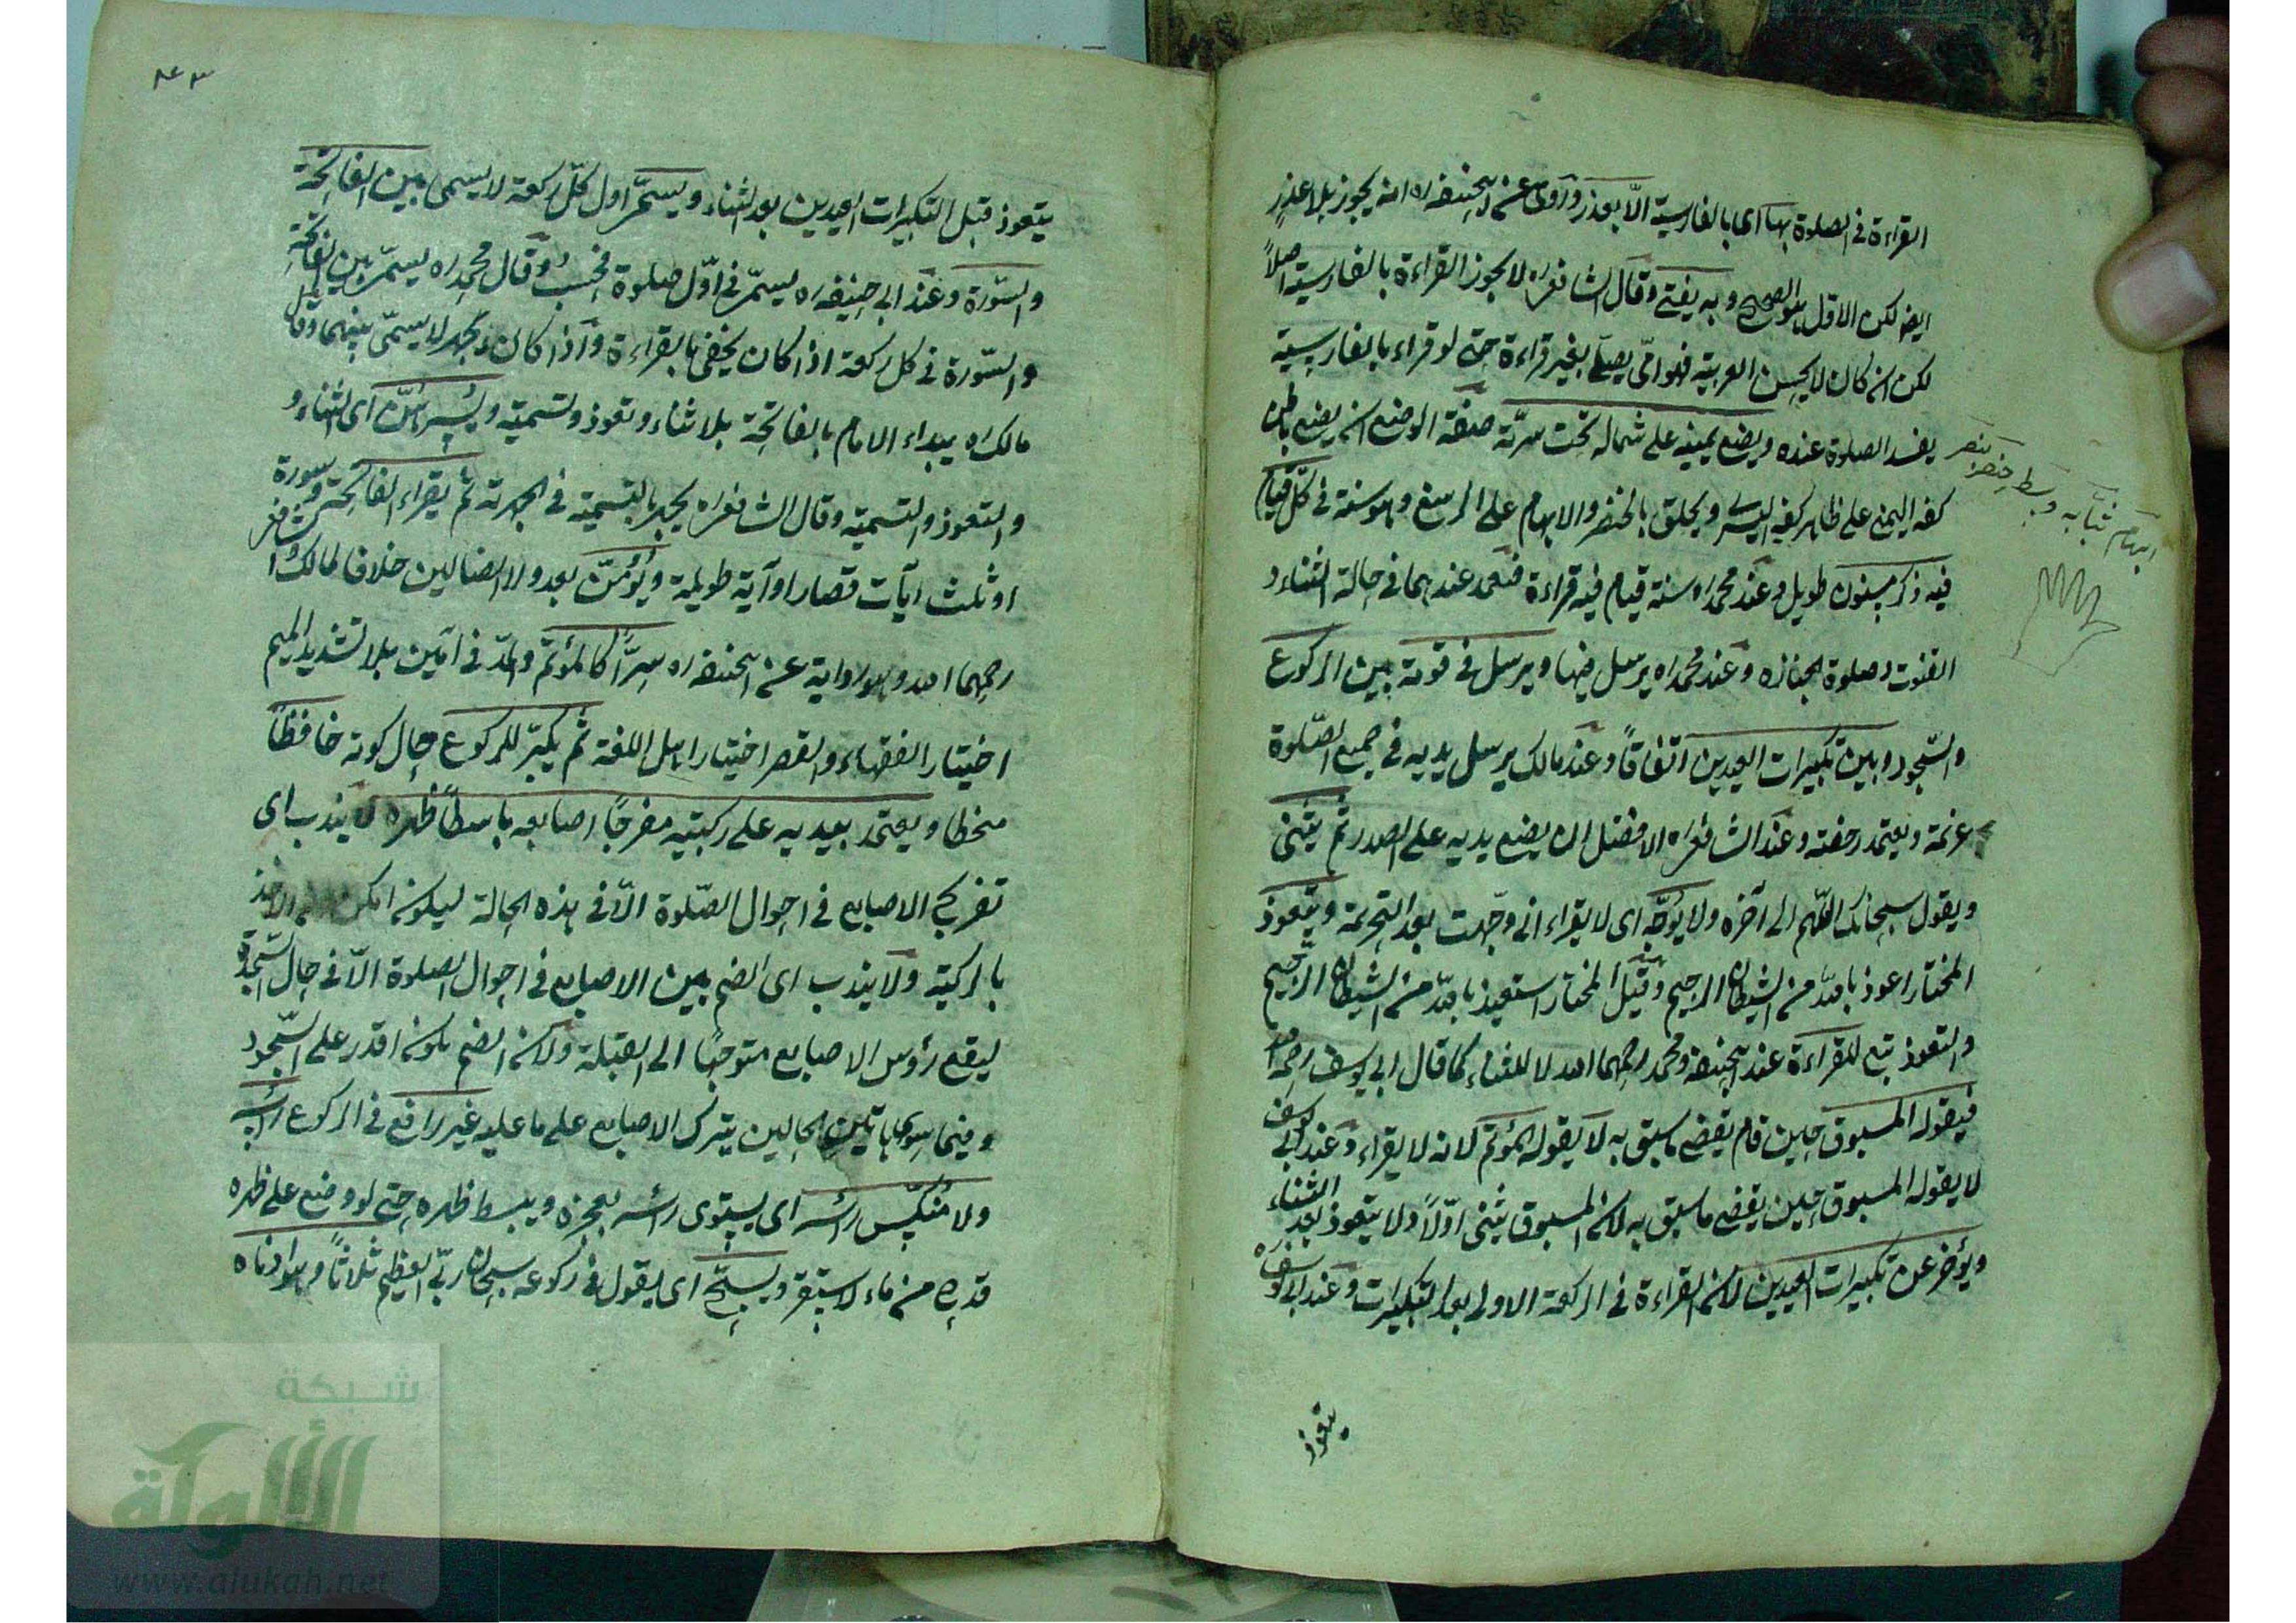 القراءة في الصلوة بها اى بالفارسية الّا بعذر وروى عن ابيحنيفه ره انه يجوز بلا عذرٍ
ايضا لكن الاوّل هو الصحيح وبه يفتى وقال الشافعى ره لا يجوز القراءة بالفارسية اصلاً
لكن ان كان لا يحسن العربية فهو امّى يصلّى بغير قراءة حتى لو قراء بالفارسية
يفسد الصلوة عنده ويضع يمينه على شماله تحت سرّته صفة الوضع ان يضع باطن
كفه اليمنى على ظاهر كفه اليسرى ويحلق بالخنصر والابهام على الرسغ وهو سنة في كلّ قيام
فيه ذكر مسنون طويل وعند محمد ره سنة قيام فيه قراءة فيعتمد عندهما في حالة الثناء و
القنوت وصلوة الجنازه وعند محمد ره يرسل فيها ويرسل في قومة بين الركوع
والسّجود وبين تكبيرات العيدين اتفاقاً وعند مالك يرسل يديه في جميع الصّلوة
عزيمة ويعتمد رخصة وعند الشافعى ره الافضل ان يضع يديه على الصدر ثم يثنى
ويقول سبحانك اللّهم الى آخره ولا يوجّه اى لا يقراء انى وجّهت بعد التحريمة ويتعوذ
المختار اعوذ بالله من الشيطان الرجيم وقيل المختار استعيذ بالله من الشيطان الرّجيم
والتعوذ تبع للقراءة عند ابيحنيفه ومحمد رحمهما الله لا للثناء كما قال ابى يوسف رحمه الله
فيقوله المسبوق حين قام يقضى ما سبق به لا يقوله المؤتمّ لانه لا يقراء وعند ابى يوسف
لا يقوله المسبوق حين يقضى ما سبق به لان المسبوق يثنى اوّلاً ولا يتعوذ بعد الثناء
ويؤخر عن تكبيرات العيدين لان القراءة في الركعة الاولى بعد التكبيرات وعند ابى يوسف ره
يتعوذ
ابهام سبّابه وسط بنصر خنصر
٤٣
يتعوذ قبل التكبيرات العيدين بعد الثناء ويسمّى اول كلّ ركعة لا يسمى بين الفاتحة
والسّورة وعند ابى حنيفه ره يسمّى في اوّل صلوة فحسبُ وقال محمد ره يسمّى بين الفاتحة
والسّورة في كل ركعة اذا كان يخفى بالقراءة واذا كان يجهر لا يسمّى بينهما وقال
مالك ره يبداء الامام بالفاتحة بلا ثناء وتعوذ وتسمية ويُسِرُّهنّ اى الثناء و
والتعوذ والتسمية وقال الشافعى ره يجهر بالتسمية في الجهرية ثم يقراء الفاتحة وسورة
او ثلث آيات قصار او آية طويلة ويُؤمّن بعد ولا الضالين خلافا لمالك والشافعى
رحمهما الله وهو رواية عن ابيحنيفه ره سِرًّا كالمؤتمّ والمدّ في آمين بلا تشديد الميم
اختيار الفقهاء والقصر اختيار اهل اللغة ثم يكبّر للركوع حال كونه خافضاً
منحطا ويعتمد بيديه على ركبتيه مفرجًا اصابعه باسطاً ظهره لا يندب اى
تفريج الاصابع في احوال الصّلوة الّا في هذه الحالة ليكون امكن الاخذ
بالركبة ولا يندب اى الضم بين الاصابع في احوال الصلوة الّا في حال السّجود
ليقع رؤس الاصابع متوجّهًا الى القبلة ولان الضم يكون اقدر على السّجود
وفيما سوى هاتين الحالين يترك الاصابع على ما عليه غير رافع في الركوع رأسه
ولا مُنكّسٍ رأسه اى يستوى رأسه بعجزه ويبسط ظهره حتى لو وضع على ظهره
قدح من ماء لاستقر ويسبّح اى يقول في ركوعه سبحان ربّى العظيم ثلاثاً وهو ادناه
شبكة
الألوكة
www.alukah.net